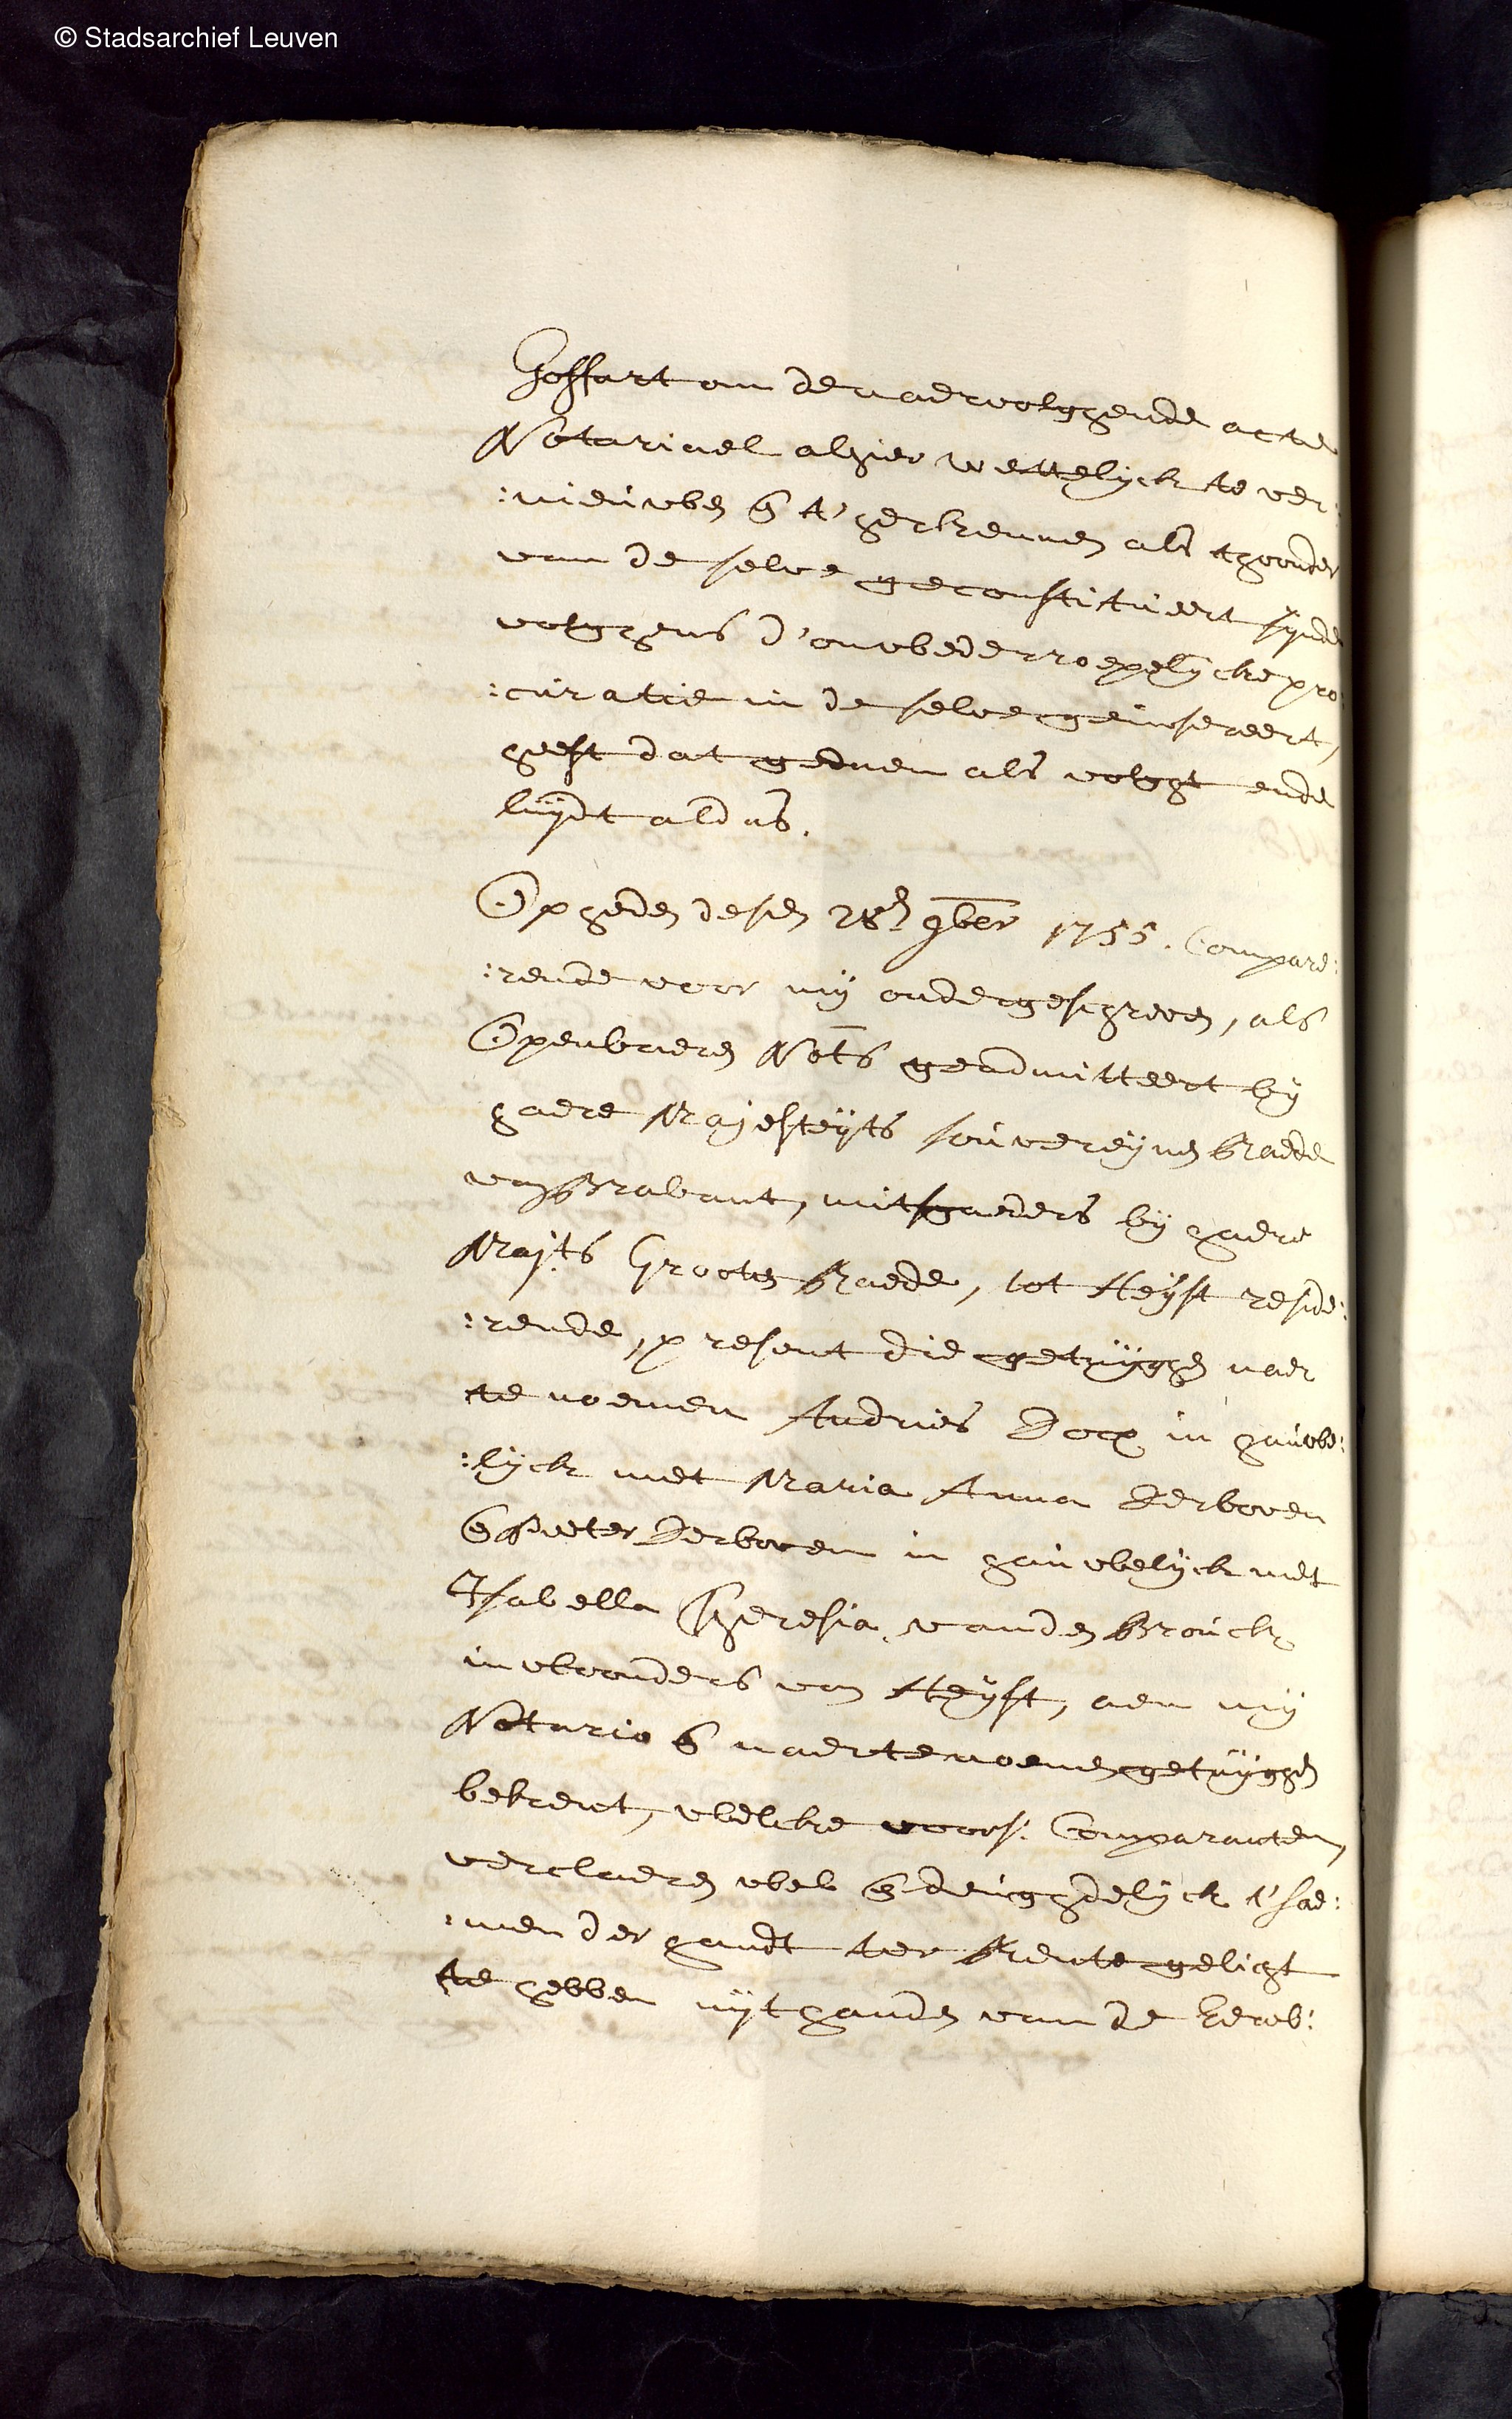 © Stadsarchief Leuven
Goffart om de naervolghende acte
Notariael alhier wettelyck te ver:
:nieuwen en t'herkennen als thoonder
van de selve geconstitueert synde
volghens d'onwederroepelycke pro
:curatie in de selve geinsereert,
heeft dat gedaen als volght ende
luydt aldus.
Op heden desen 28en 9ber 1755. Compare:
:rende voor my ondergeschreven, als
Openbaeren Nots geadmitteert by
haere Majesteyts souvereynen Raede
van Brabant, mitsgaeders by haere
Majts Grooten Raede, tot Heyst reside:
:rende, present die getuyghen naer
te noemen Andries Docx in hauwe:
:lyck met Maria Anna Derboven
en Peeter Derboven in hauwelyck met
Isabella Theresia vanden Brouck
inwoonders van Heyst, aen my
Notario en naer te noemen getuyghen
bekent, welcke voors: Comparanten,
verclaeren wel en deughdelyck t'sae:
:men der handt ter Rente gelight
te hebben uyt handen van de Eerw: